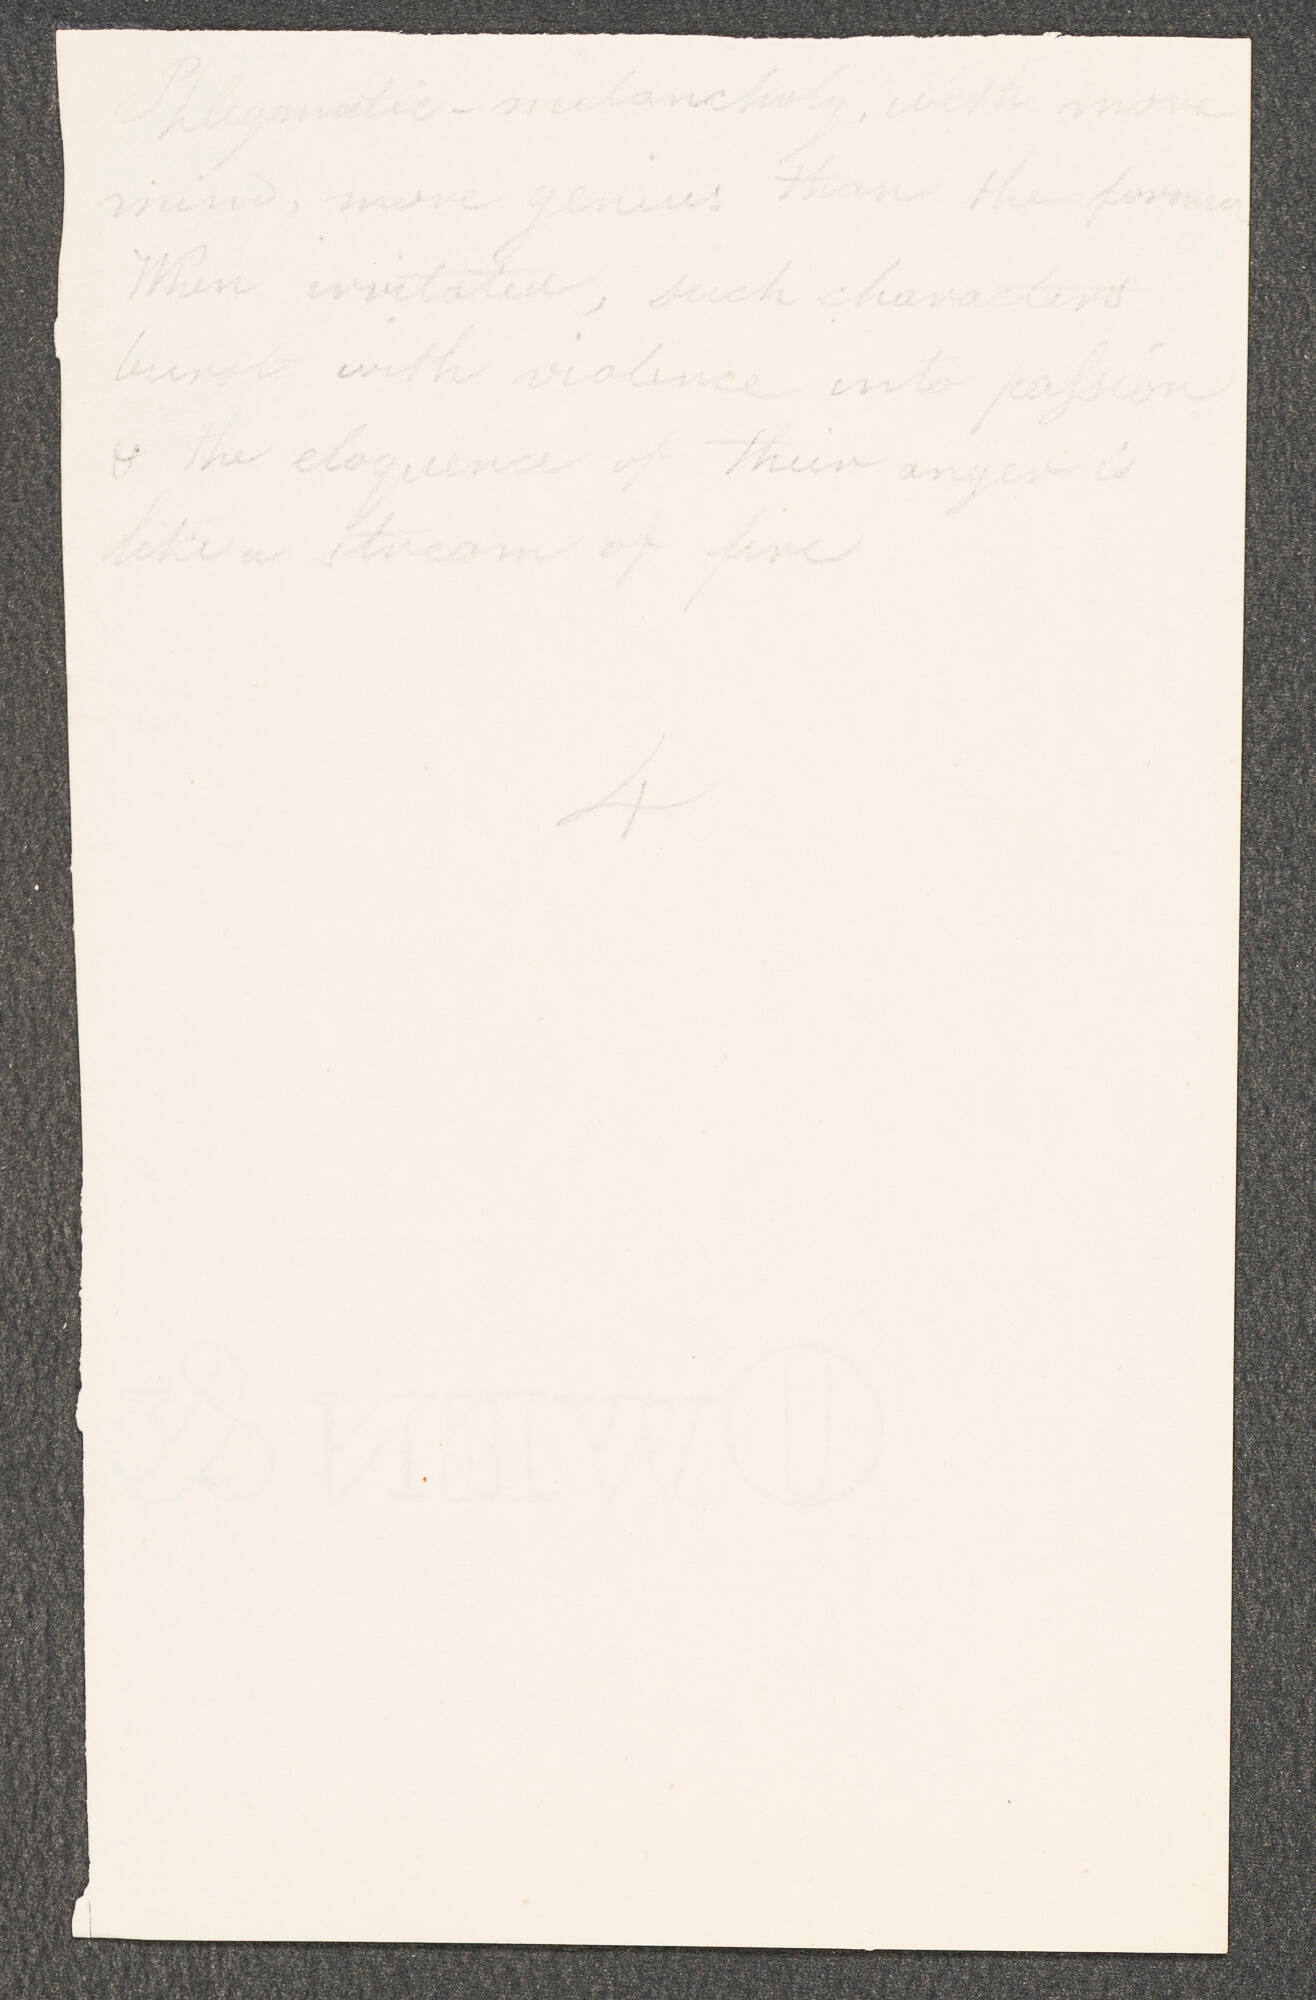 Phlegmatic - melancholy, with more
mind, more genius than the former
When irritated, such characters
burst with violence into passion
& the eloquence of their anger is
like a stream of fire
4
OWEN &